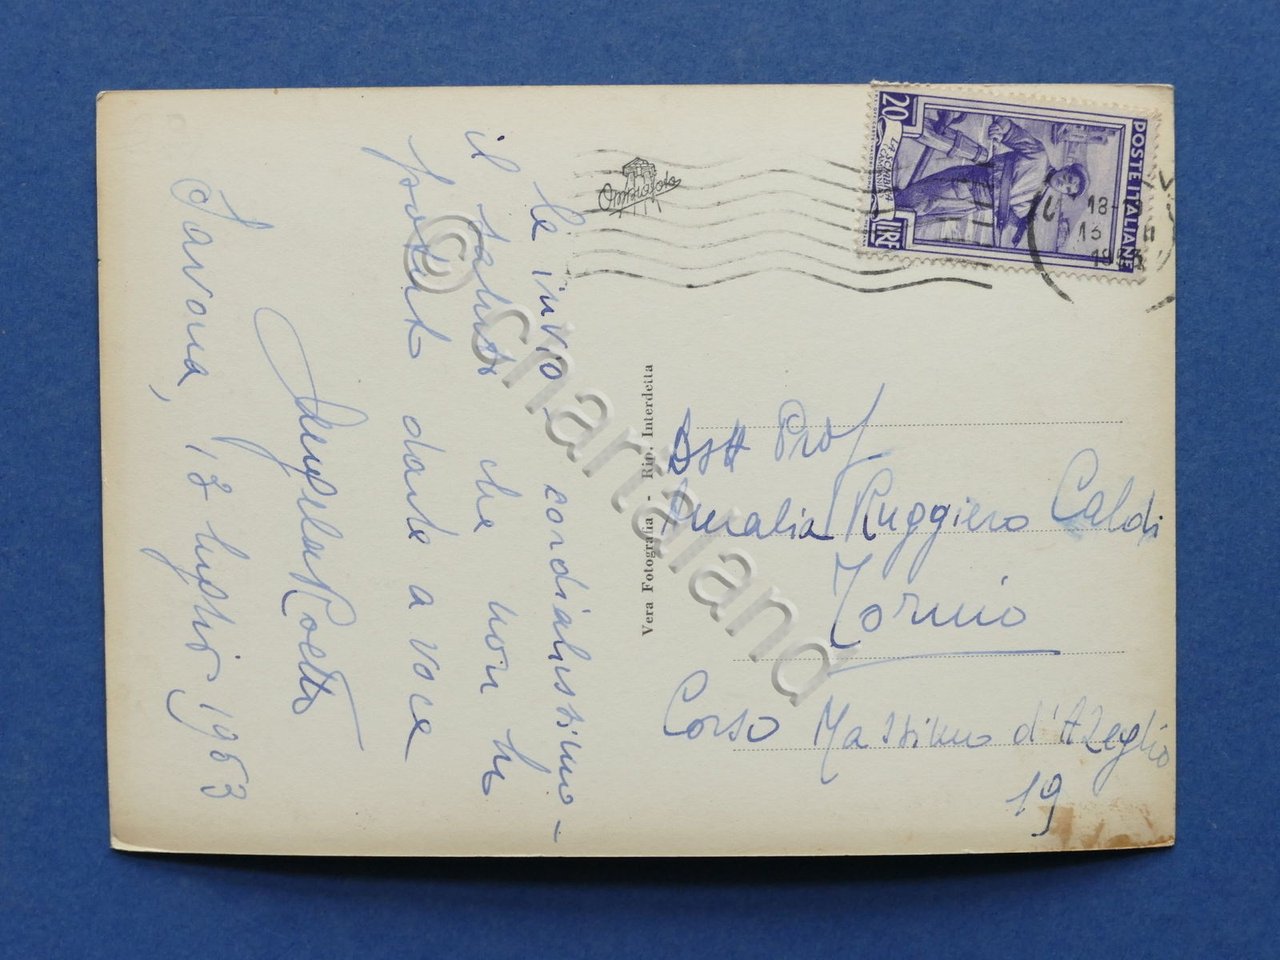 Le invio - cordialissimo -
il saluto che non ho
potuto darle a voce
Angela
Savona, 13 luglio 1953
Vera Fotografia - Rip. Interdetta
Omniafoto
POSTE ITALIANE
20
LIRE
18-
13
1953
Prof
Amalia Ruggiero Caldi
Torino
Corso Massimo d'Azeglio
19
© chartaland